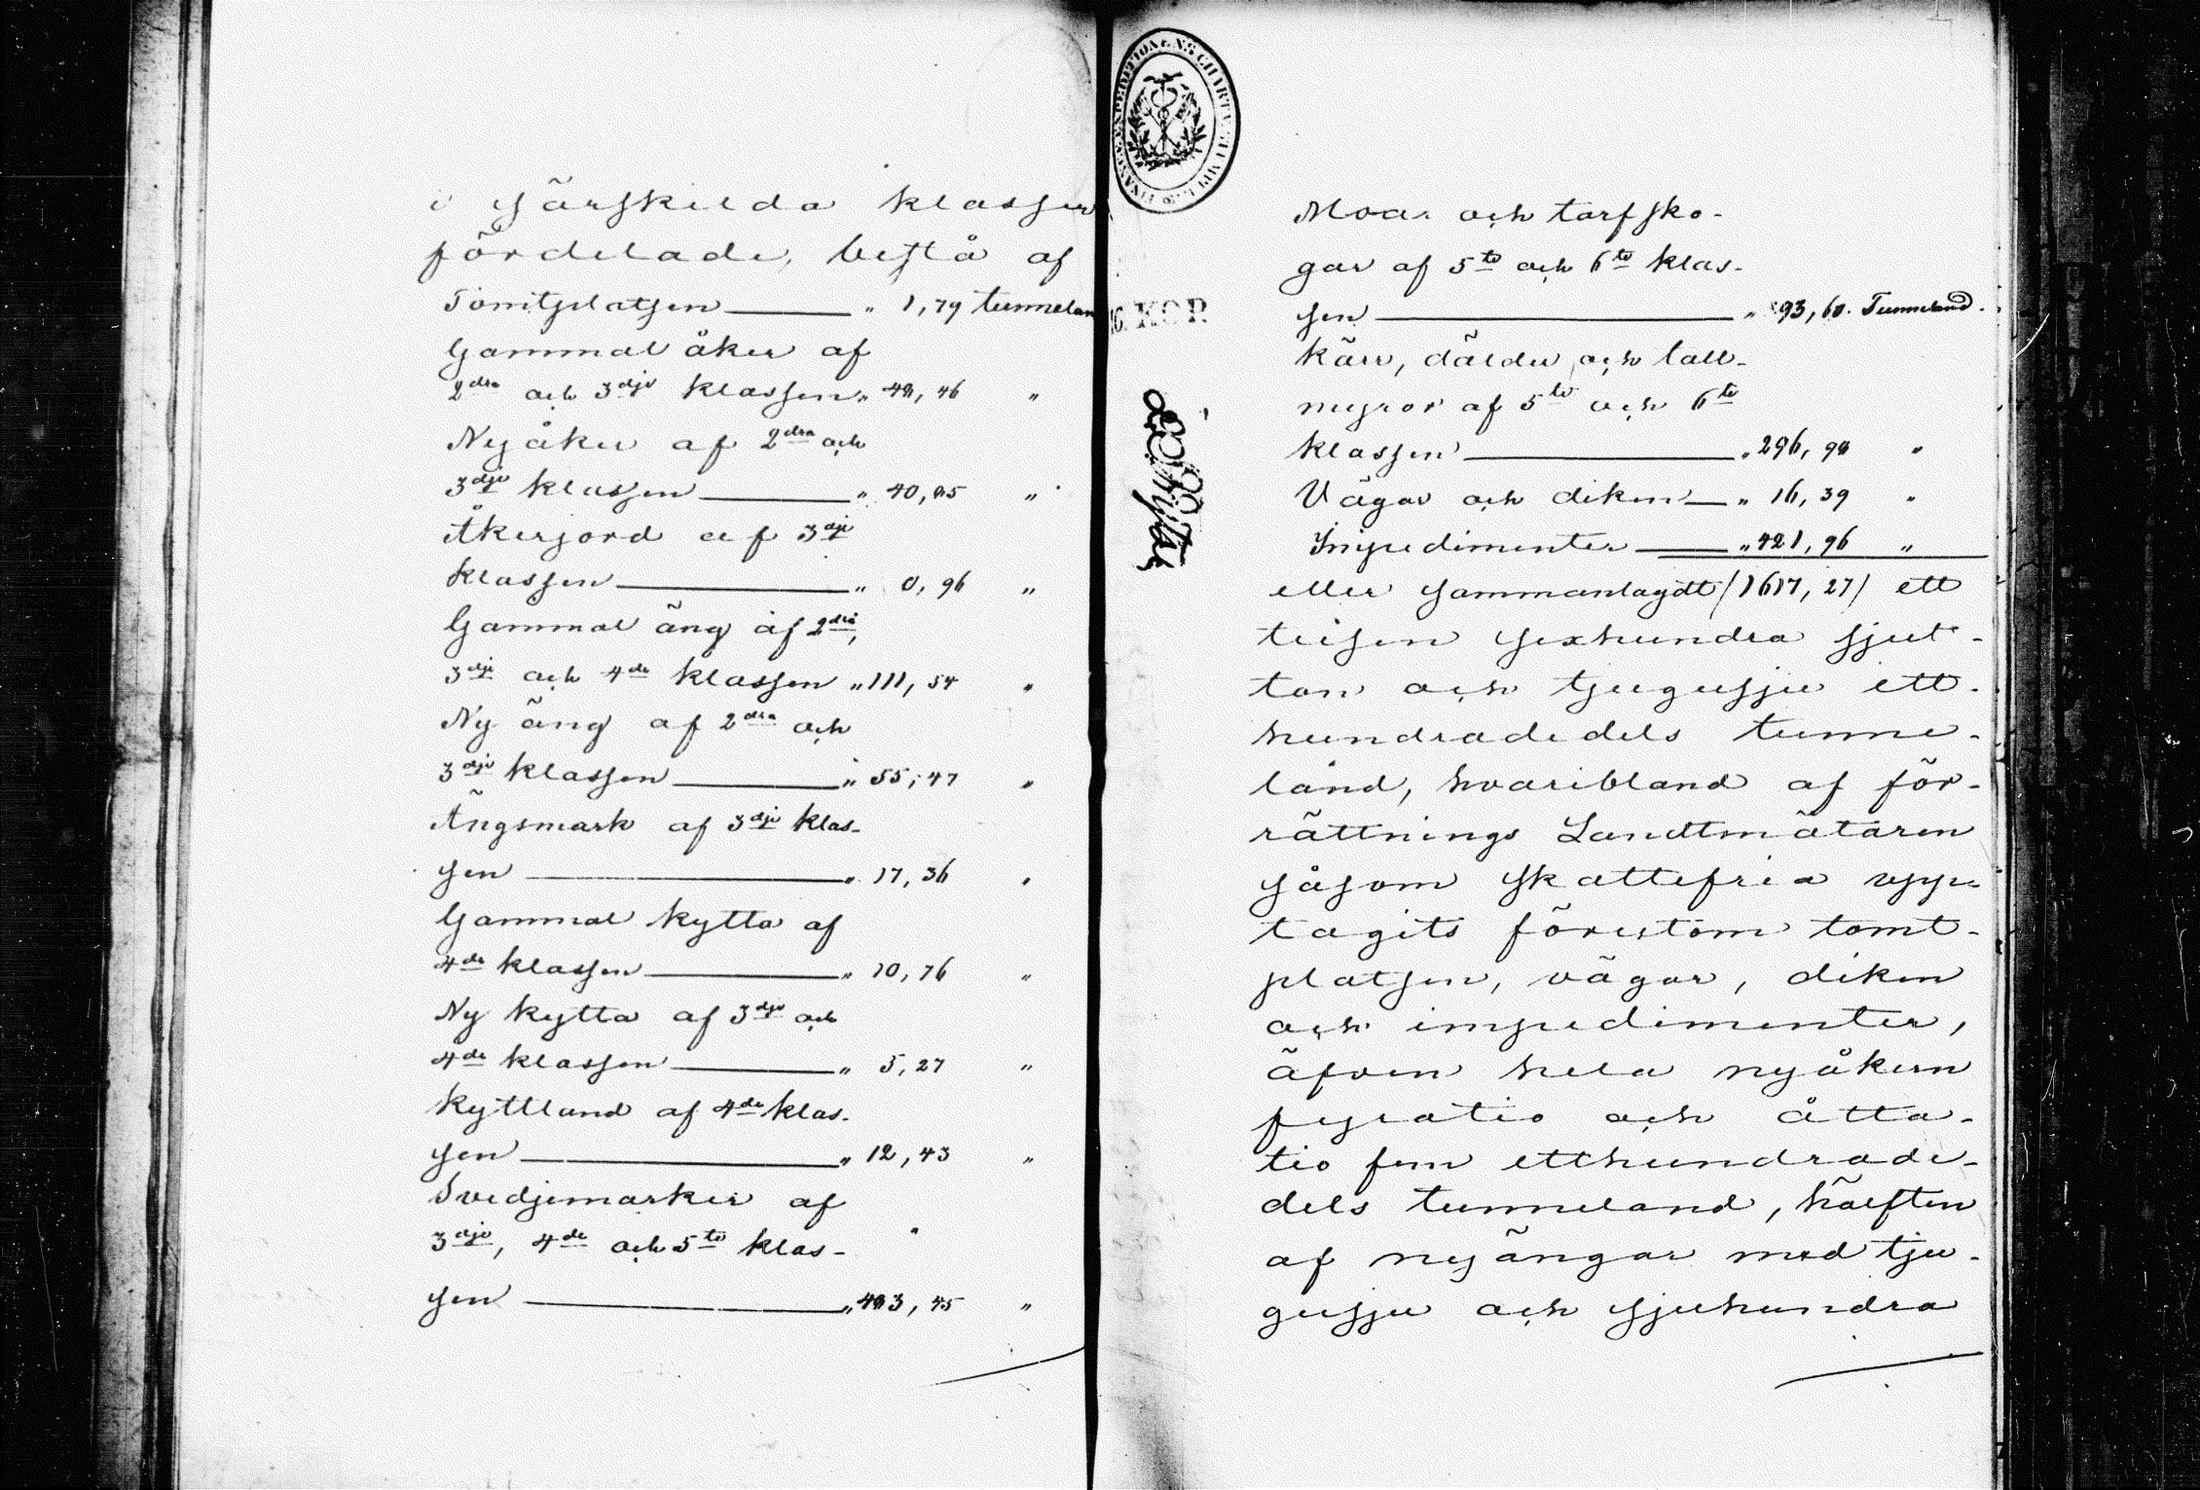 i särskilda klasser
fördelade, bestå af
Tomtplatsen " 1,79 tunneland
Gammal åker af
2dra och 3dje klassen " 48,46 "
Nyåker af 2dra och
3dje klassen " 40,85 "
Åkerjord af 3dje
klassen " 0,96 "
Gammal äng af 2dra,
3dje och 4de klassen " 111,54 "
Ny äng af 2dra och
3dje klassen " 55,47 "
Ängsmark af 3dje klas-
sen " 17,36 "
Gammal kytta af
4de klassen " 10,76 "
Ny kytta af 3dje och
4de klassen " 5,27 "
Kyttland af 4de klas-
sen " 12,43 "
Svedjemarker af
3dje, 4de och 5te klas-
sen " 483,45 "
FINANS-EXPEDITIONENS CHARTÆ
KOP.
Moar och torfsko-
gar af 5te och 6te klas-
sen " 93,60. Tunneland.
kärr, dälder och tall-
myror af 5te och 6te
klassen " 296,90 "
Vägar och diken " 16,39 "
Impedimenter " 421,96 "
eller sammanlagdt /1617,27/ ett
tusen sexhundra sjut-
ton och tjugusju ett-
hundradedels tunne-
land, hvaribland af för-
rättnings Landtmätaren
såsom skattefria upp-
tagits förutom tomt-
platsen, vägar, diken
och impedimenter,
äfven hela nyåkern
fyratio och åtta-
tio fem etthundrade-
dels tunneland, hälften
af nyängar med tju-
gusju och sjuhundra